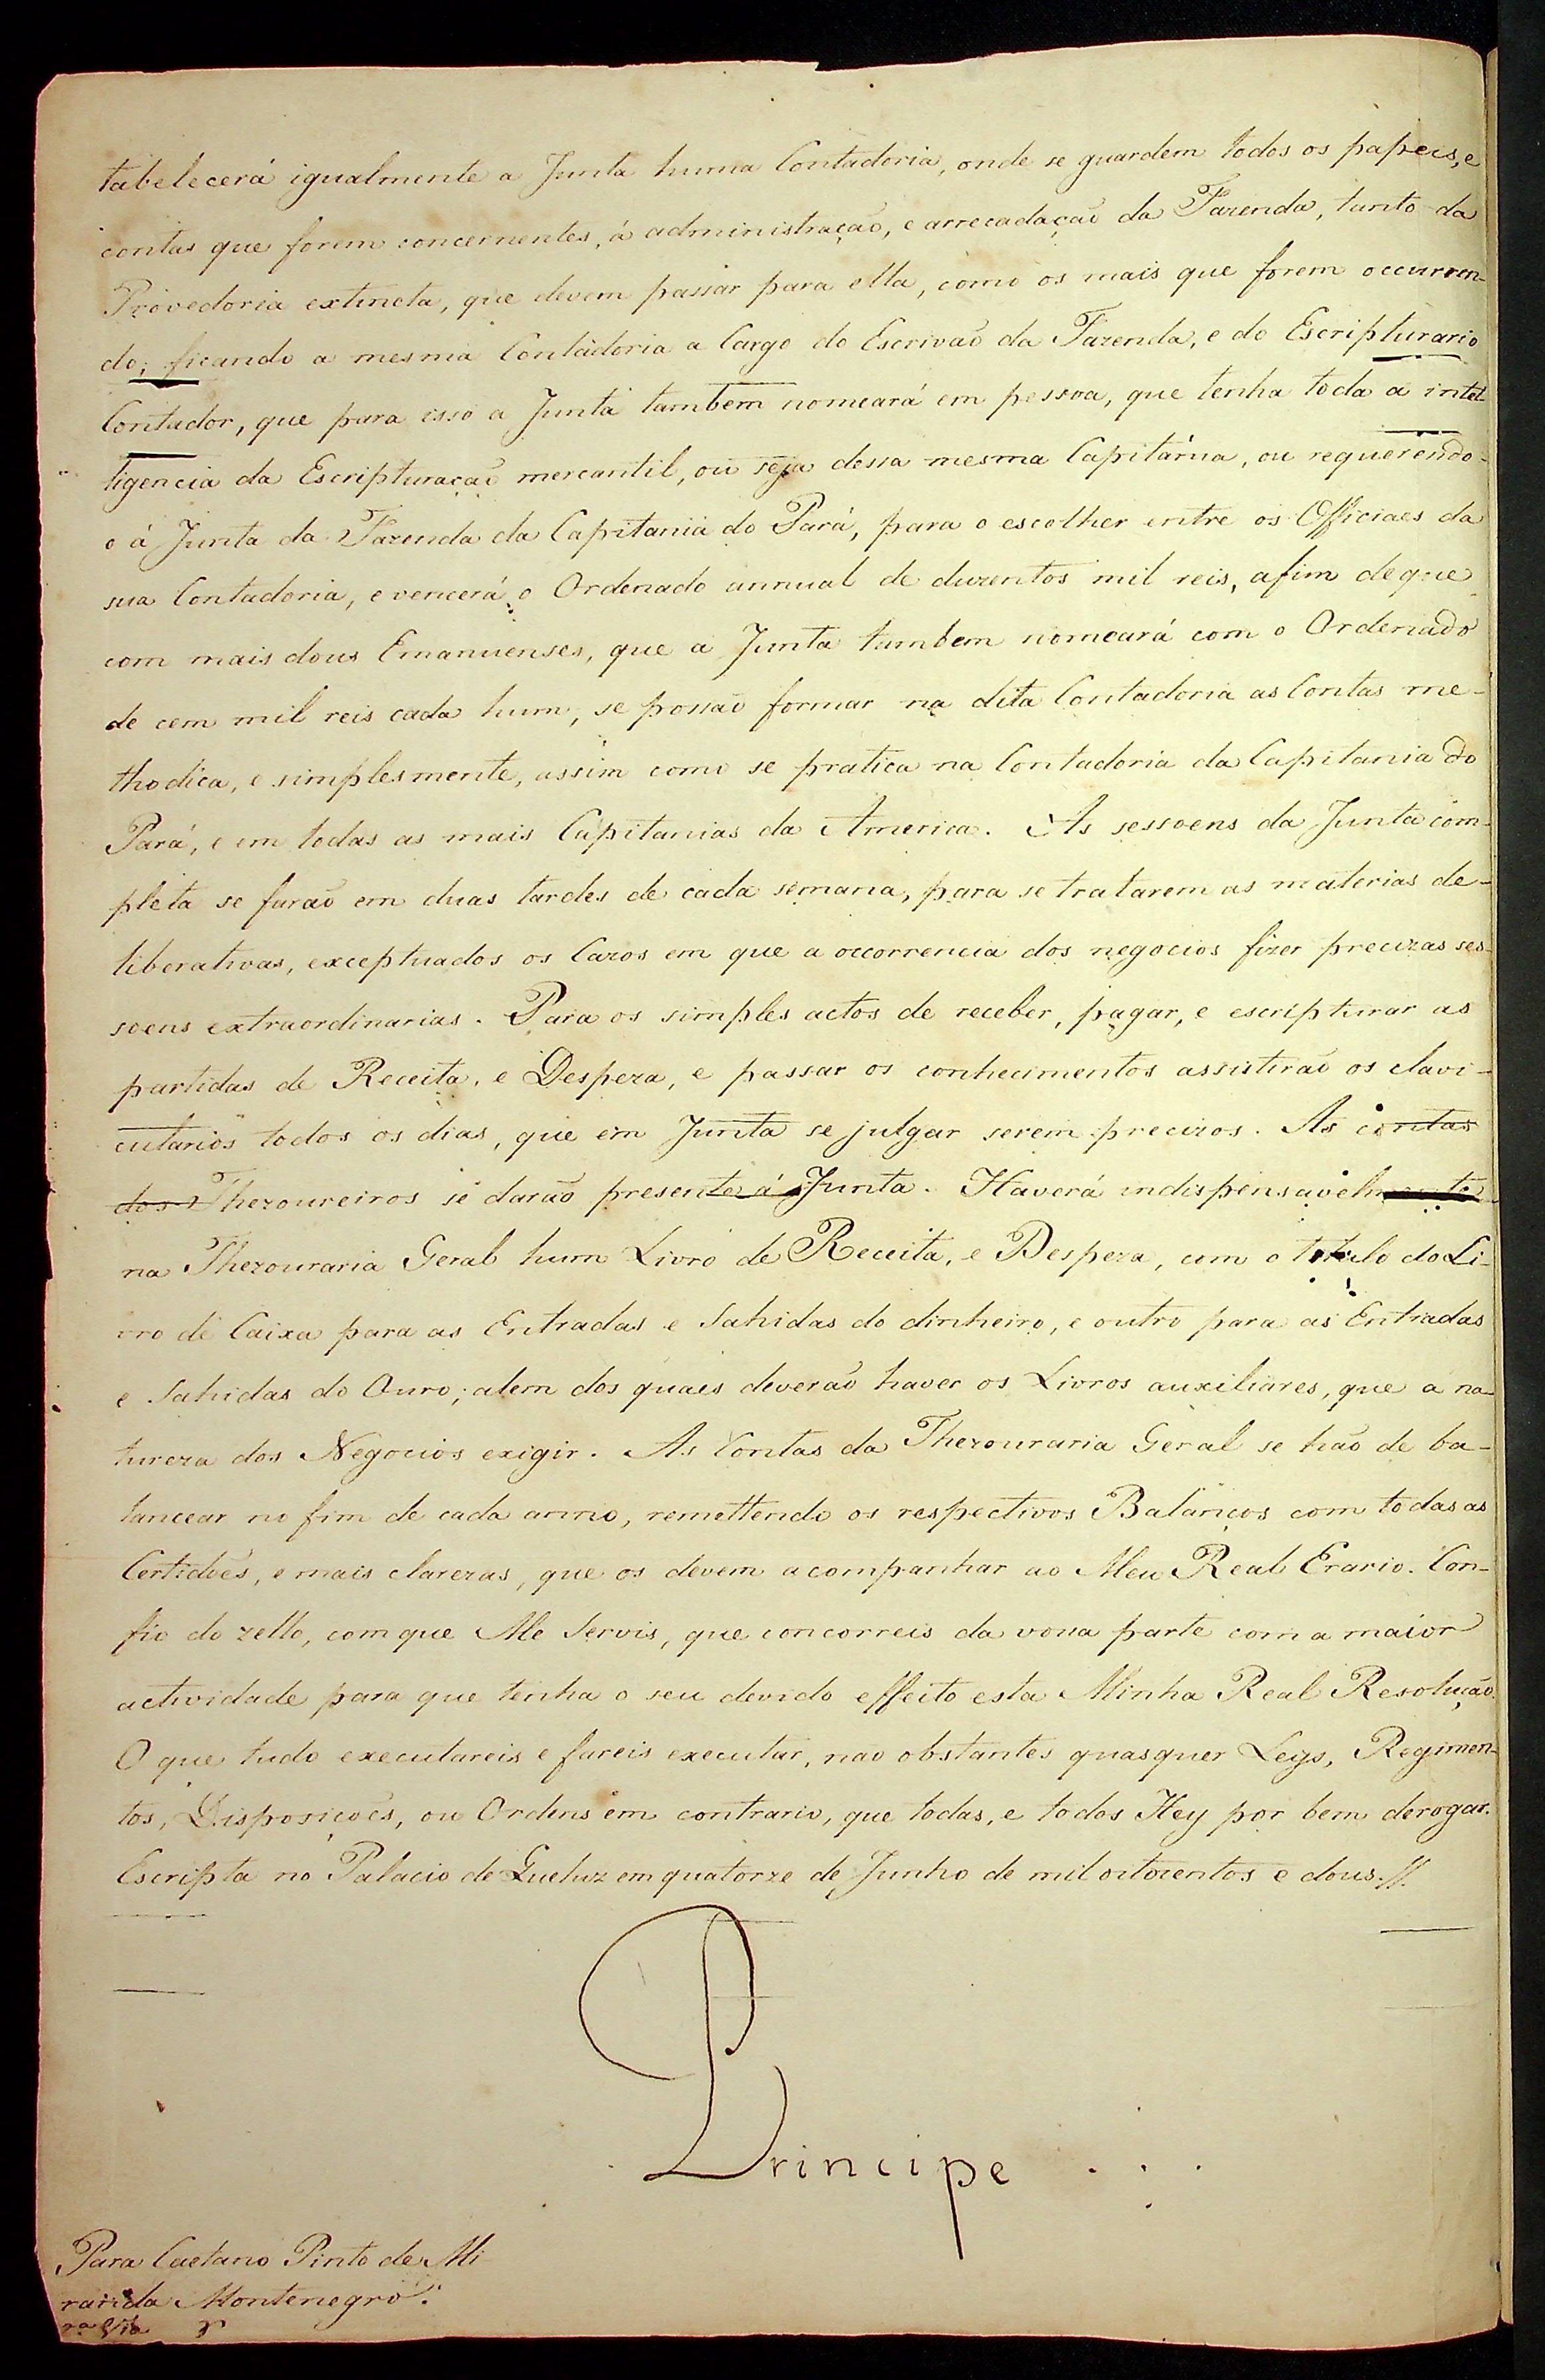 tabelecerá igualmente a Junta huma Contadoria, onde se guardem todos os papeis, e
contas que forem concernentes, á administração, e arrecadação da Fazenda, tanto da
Provedoria extincta, que devem passar para ella, como os mais que forem occurren-
do; ficando a mesma Contadoria a Cargo do Escrivão da Fazenda, e do Escripturario
Contador, que para isso a Junta tambem nomeará em pessoa, que tenha toda a intel-
ligencia da Escripturação mercantil, ou seja dessa mesma Capitánia, ou requerendo-
o á Junta da Fazenda da Capitania do Pará, para o escolher entre os Officiaes da
sua Contadoria, e vencerá o Ordenado annual de duzentos mil reis, afim de que
com mais dous Emanuenses, que a Junta tambem nomeará com o Ordenado
de cem mil reis cada hum, se possão formar na dita Contadoria as Contas me-
thodica, e simplesmente, assim como se pratica na Contadoria da Capitania do
Pará, e em todas as mais Capitanias da America. As sessoens da Junta com-
pleta se farão em duas tardes de cada semana, para se tratarem as materias de-
liberativas, exceptuados os Cazos em que a occorrencia dos negocios fizer precizas ses-
soens extraordinarias. Para os simples actos de receber, pagar, e escripturar as
partidas de Receita, e Despeza, e passar os conhecimentos assistirão os clavi-
cularios todos os dias, que em Junta se julgar serem precizos. As contas
dos Thezoureiros se darão presente á Junta. Haverá indispensavelmente
na Thezouraria Geral hum Livro de Receita, e Despeza, com o titulo do Li-
vro de Caixa para as Entradas e Sahidas do dinheiro, e outro para as Entradas
e Sahidas do Ouro; alem dos quaes deverão haver os Livros auxiliares, que a na-
tureza dos Negocios exigir. As Contas da Thezouraria Geral se hão de ba-
lancear no fim de cada anno, remettendo os respectivos Balanços com todas as
Certidoẽs, e mais clarezas, que os devem acompanhar ao Meu Real Erario. Con-
fio do zello, com que Me Servis, que concorreis da vossa parte com a maior
actividade para que tenha o seu devido effeito esta Minha Real Resolução.
O que tudo executareis e fareis executar, não obstantes quasquer Leys, Regimen-
tos, Disposiçoẽs, ou Ordens em contrario, que todas, e todos Hey por bem derogar.
Escripta no Palacio de Queluz em quatorze de Junho de mil oitocentos e dous.//.
Principe
Para Caetano Pinto de Mi
randa Montenegro.